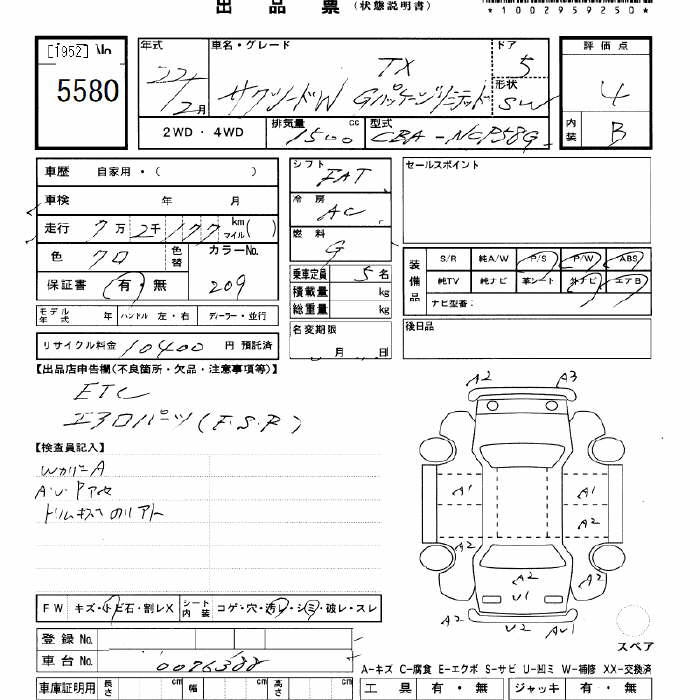 出品票 (状態説明書)
*1002959250*
[1952] No
5580
年式 22年 12月
車名・グレード TX
サクシードW Gパッケージリミテッド
ドア 5
形状 SW
2WD・4WD
排気量 1500 cc
型式 CBA-NCP58G
評価点 4
内装 B
車歴 自家用・( )
車検 年 月
走行 7万2千177 km マイル( )
色 クロ 色替 カラーNo. 209
保証書 有・無
モデル年式 年 ハンドル 左・右 ディーラー・並行
リサイクル料金 10400 円 預託済
シフト FAT
冷房 AC
燃料 G
乗車定員 5 名
積載量 kg
総重量 kg
名変期限
月 日
セールスポイント
装備品 S/R 純A/W P/S P/W ABS
純TV 純ナビ 革シート 外ナビ エアB
ナビ型番:
後日品
【出品店申告欄(不良箇所・欠品・注意事項等)】
ETC
エアロパーツ(F.S.R)
【検査員記入】
WカバーA
A・U・Pアセ
トリムキズ のリアト
A2 A3
A1 A1
A2
A2 A2
A2
U1
A2 U2 AU1
スペア
FW キズ・トビ石・割レX シート内装 コゲ・穴・汚レ・シミ・破レ・スレ
登録No.
車台No. 0086388
A-キズ C-腐食 E-エクボ S-サビ U-凹ミ W-補修 XX-交換済
車庫証明用 長さ cm 幅 cm 高さ cm
工具 有・無 ジャッキ 有・無